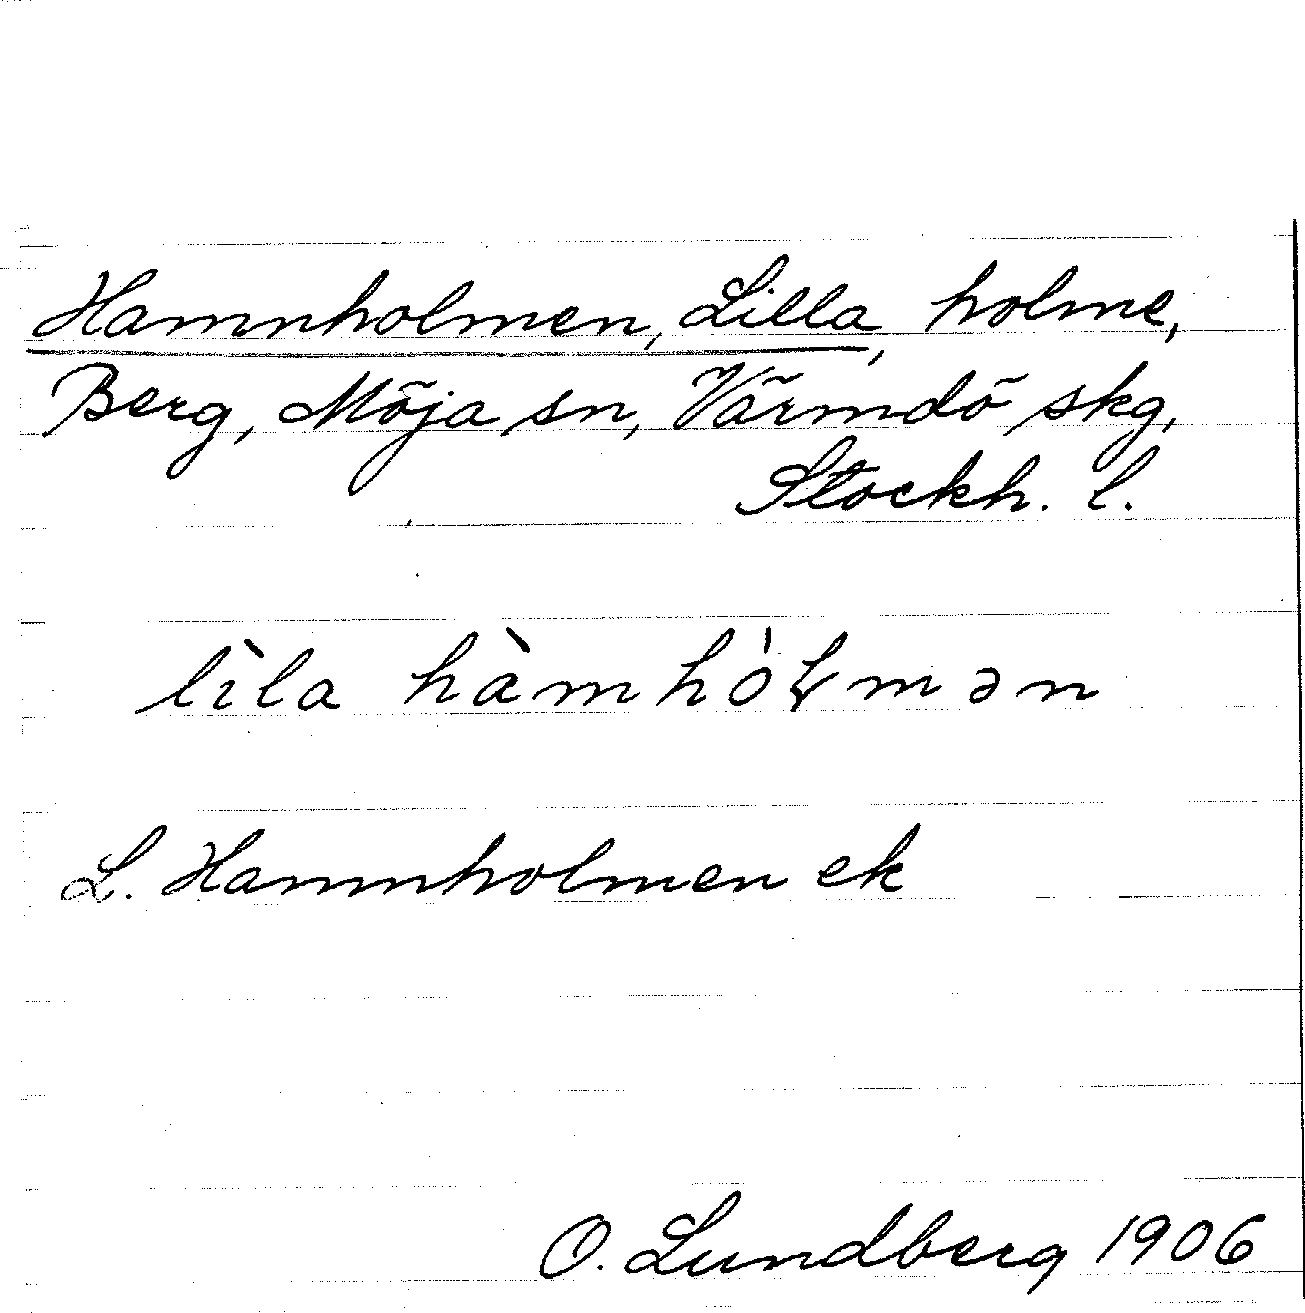 Hamnholmen, Lilla, holme,
Berg, Möja sn, Värmdö skg,
Stockh. l.
lìla hàmhòⱡmən
L. Hamnholmen ek
O. Lundberg 1906